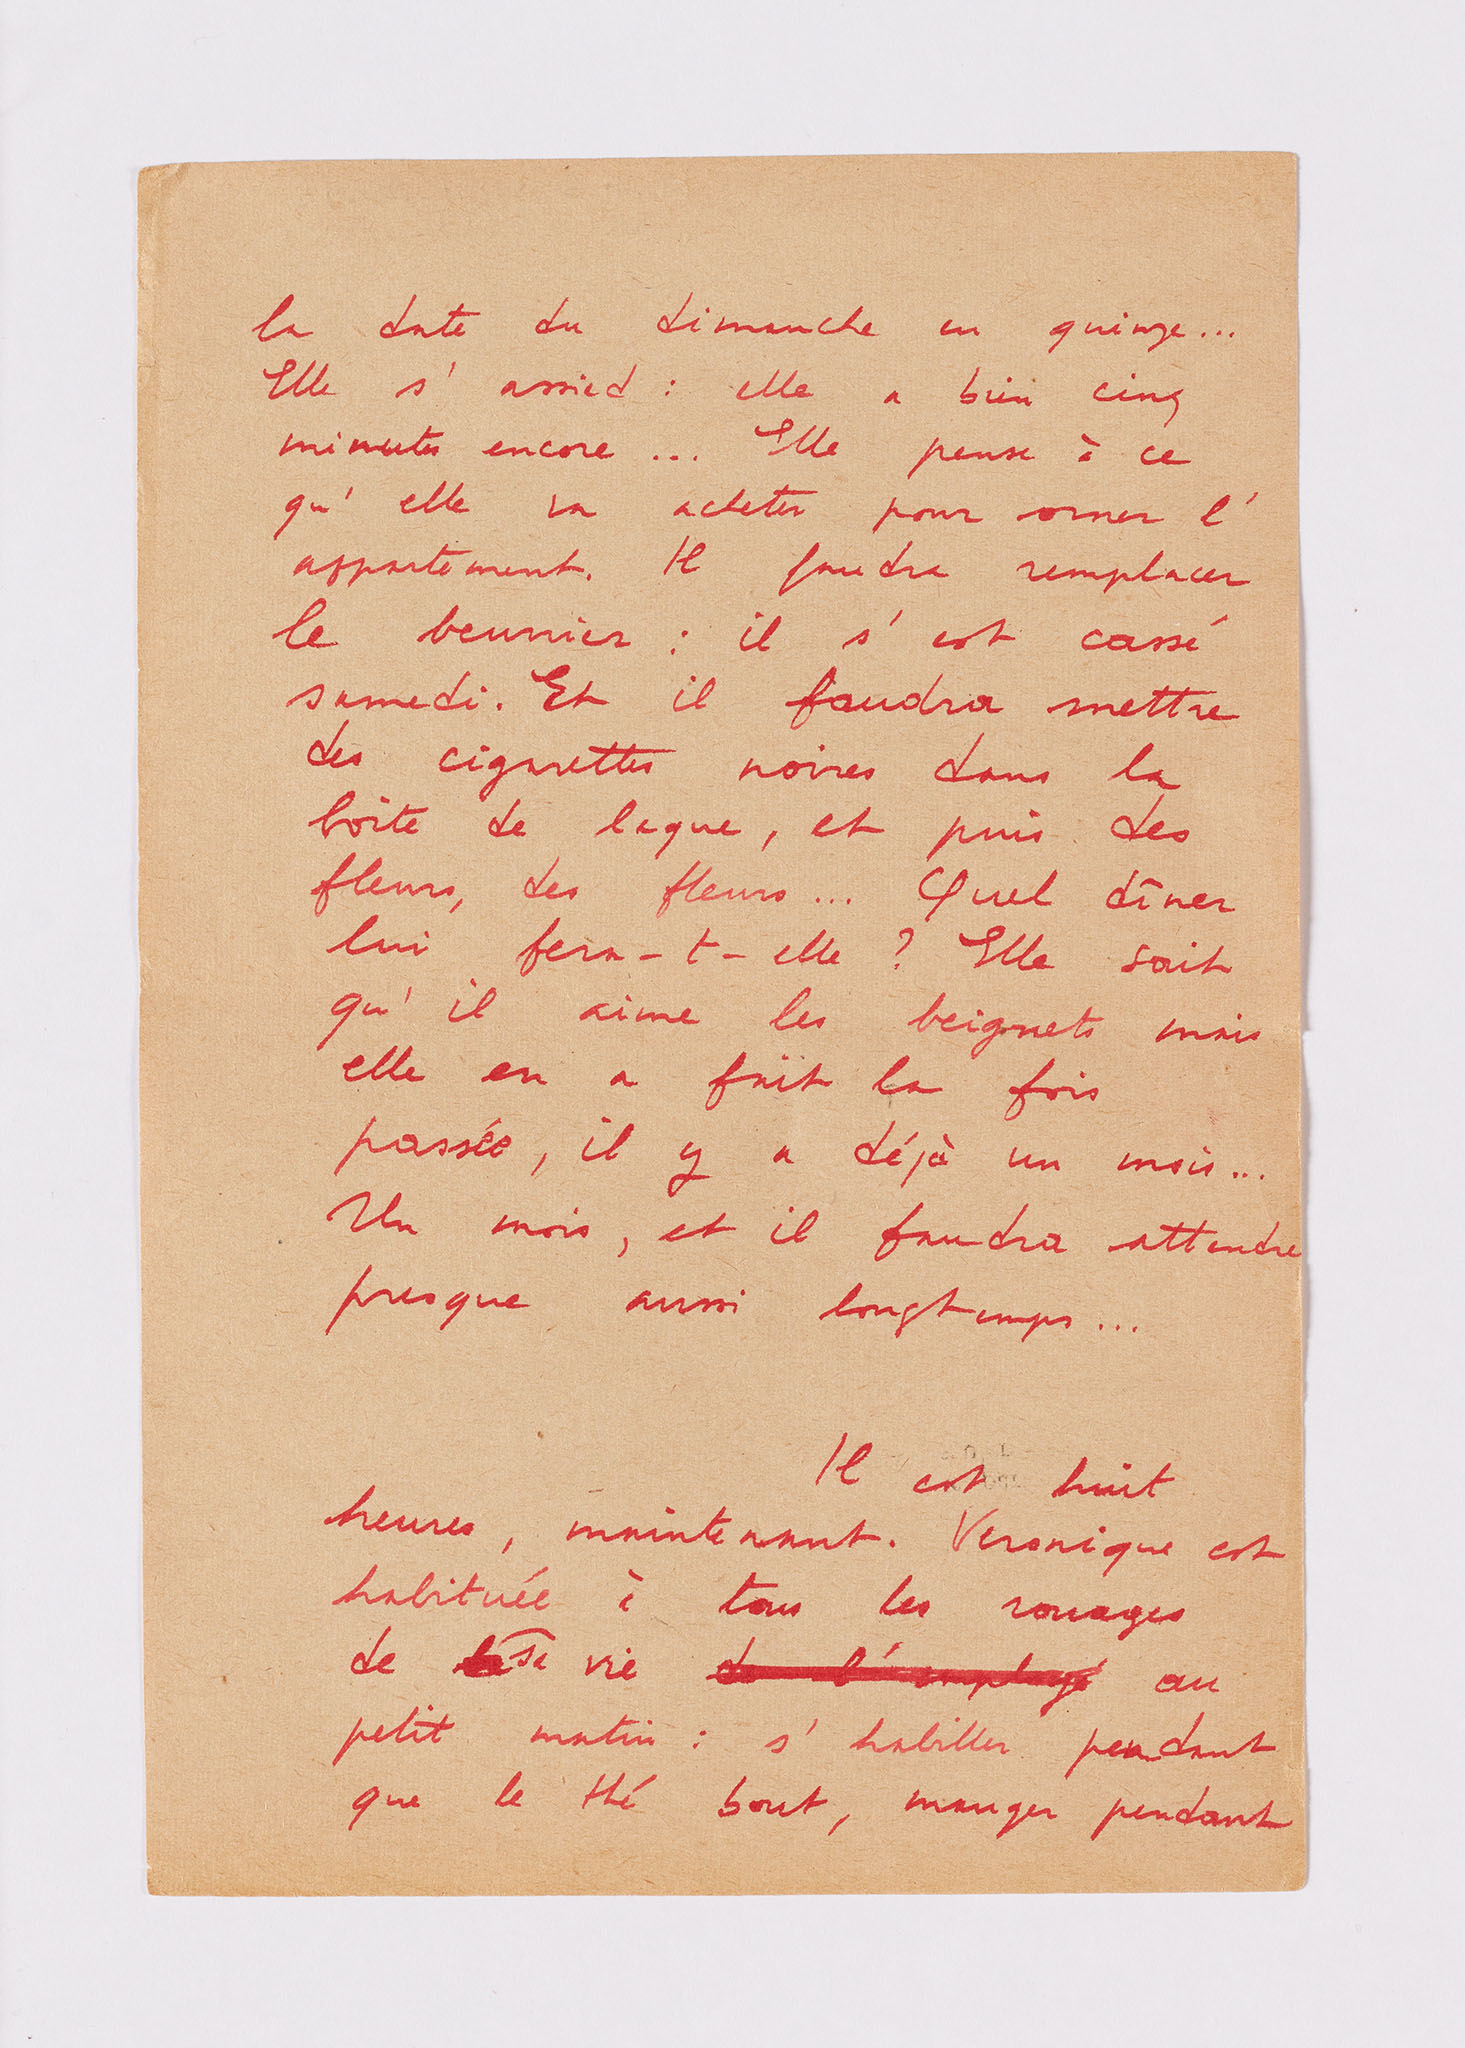 la date du dimanche en quinze...
Elle s'assied : elle a bien cinq
minutes encore... Elle pense à ce
qu'elle va acheter pour orner l'
appartement. Il faudra remplacer
le beurrier : il s'est cassé
samedi. Et il faudra mettre
des cigarettes noires dans la
boîte de laque, et puis des
fleurs, des fleurs... Quel dîner
lui fera-t-elle ? Elle sait
qu'il aime les beignets mais
elle en a fait la fois
passée, il y a déjà un mois...
Un mois, et il faudra attendre
presque aussi longtemps...
Il est huit
heures, maintenant. Véronique est
habituée à tous les rouages
de sa vie de l'employé au
petit matin : s'habiller pendant
que le thé bout, manger pendant